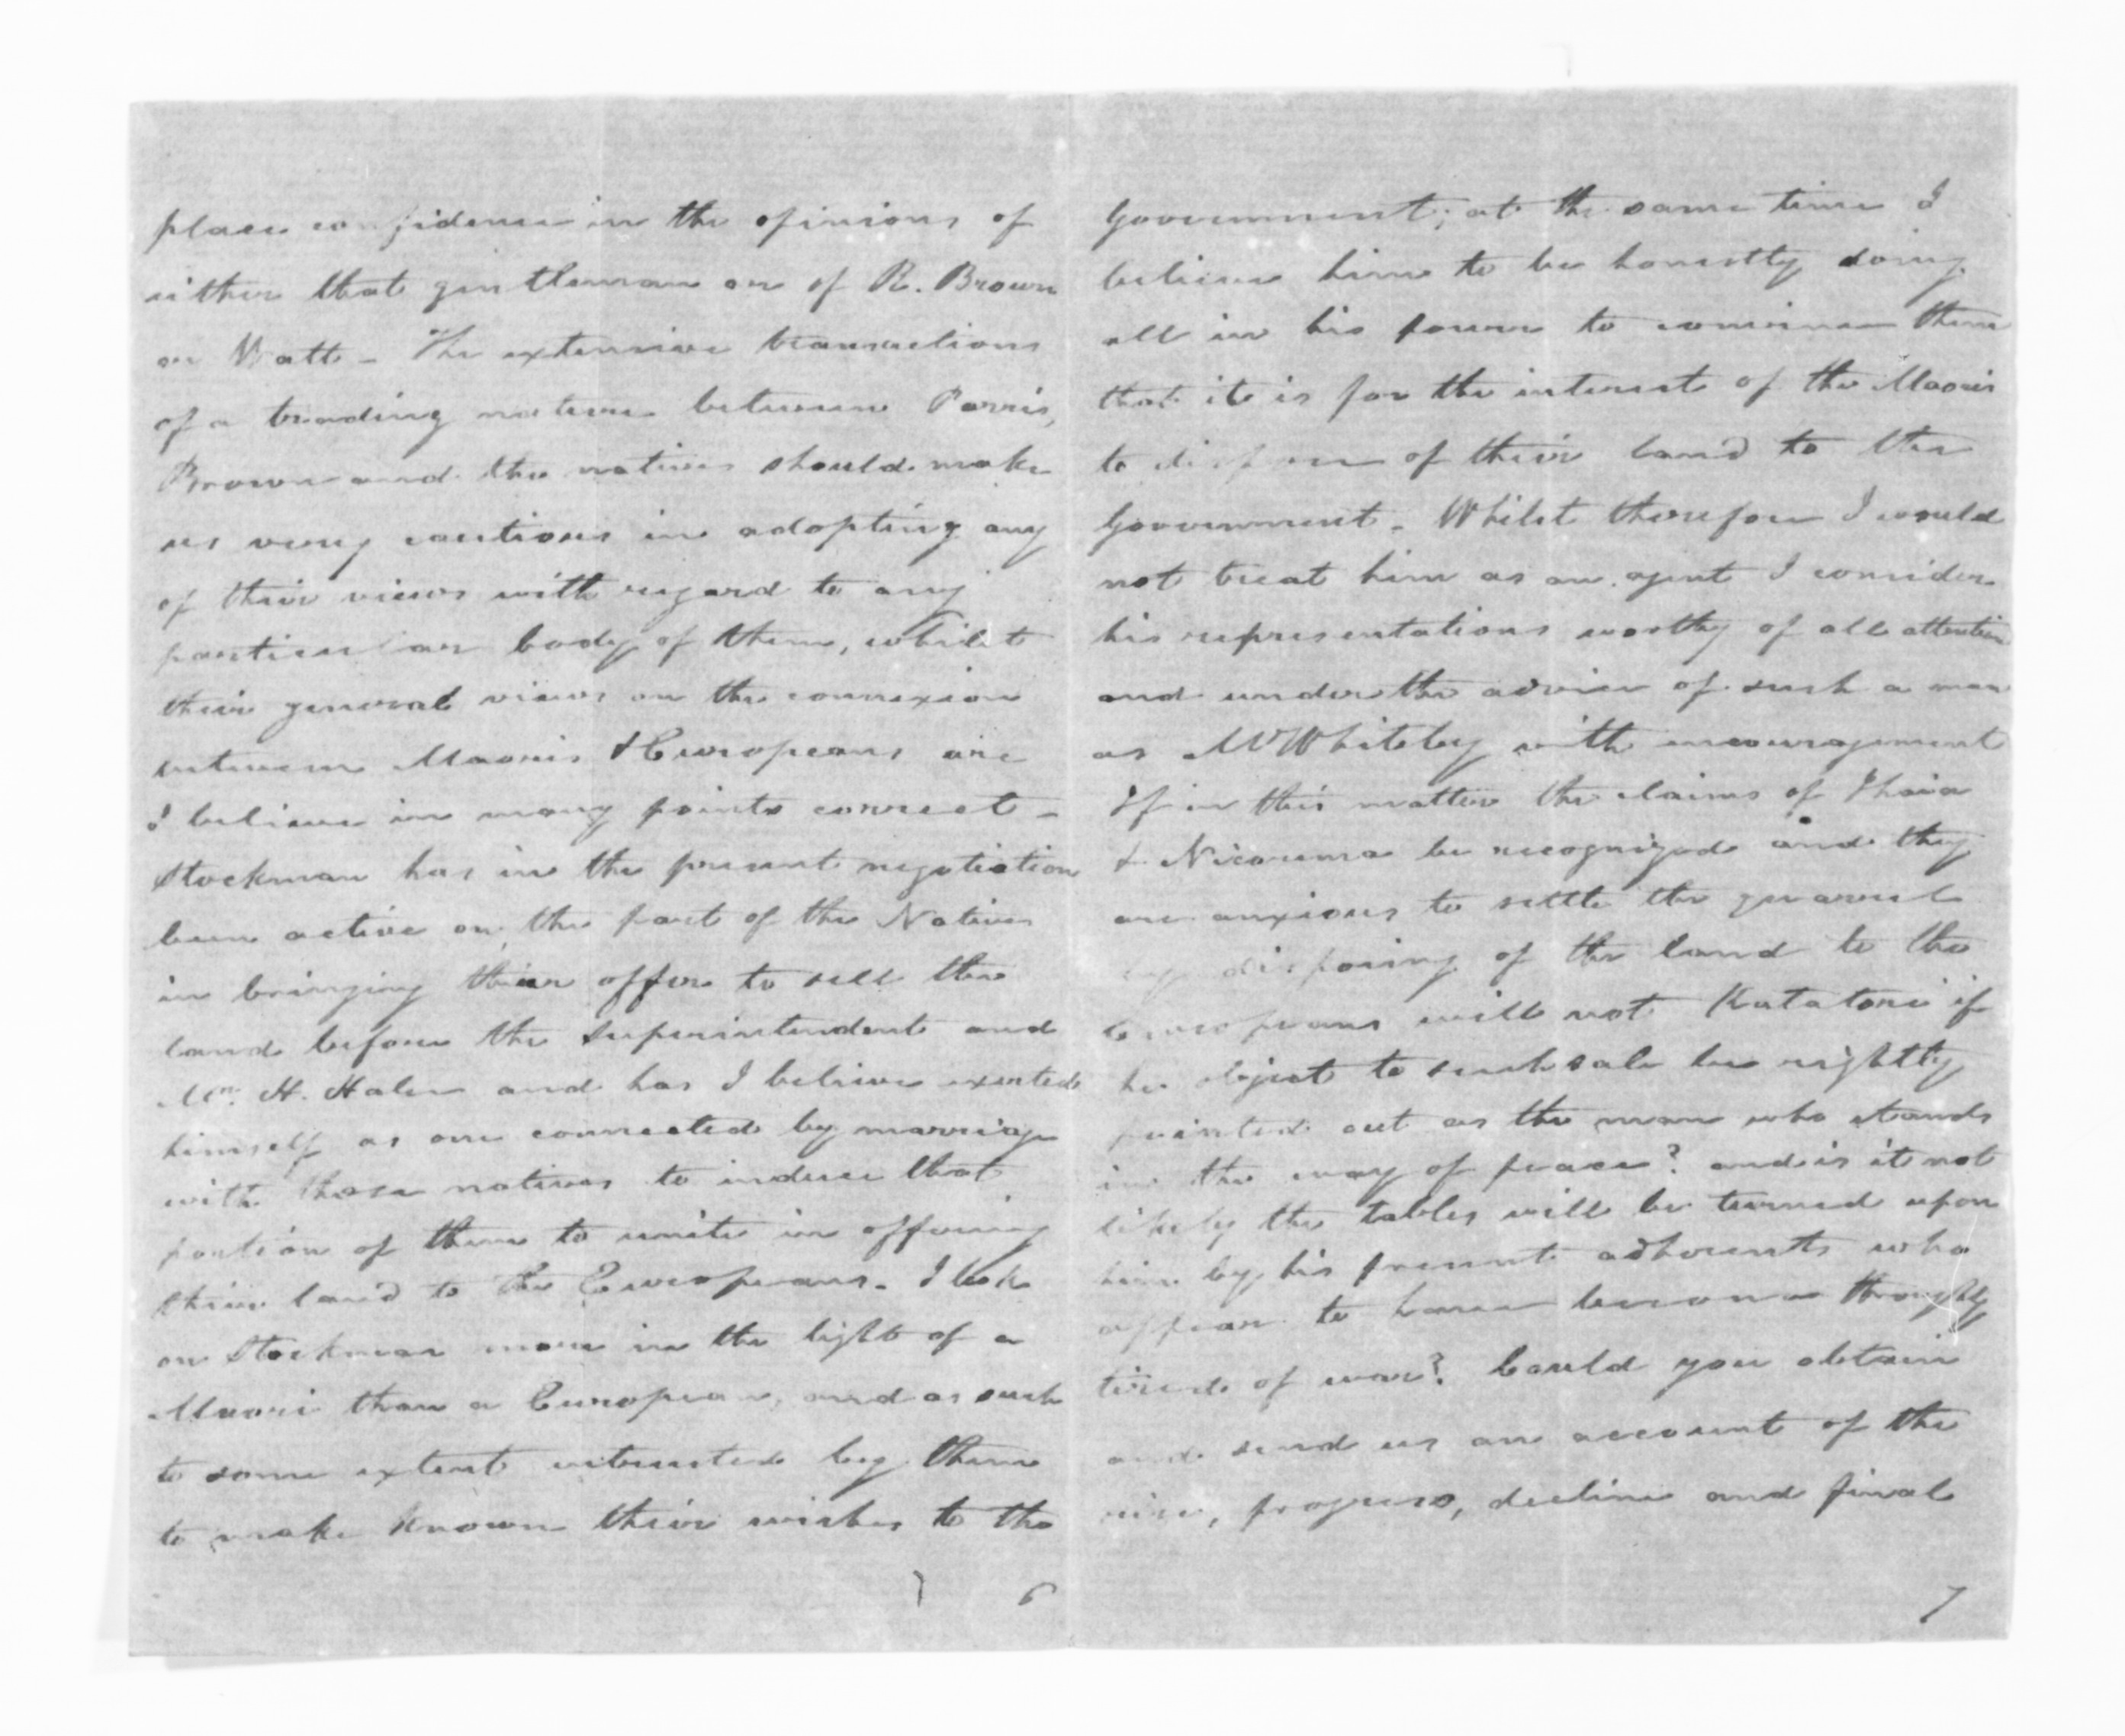 place confidence in the opinions of
either that gentleman or of R. Brown
or Watt - The extensive transactions
of a trading nature between Parris,
Brown and the natives should make
us very cautious in adopting any
of their views with regard to any
particular body of them, whilst
their general views on the connexion
between Maoris & Europeans are
I believe in many points correct -
Stockman has in the present negotiation
been active on the part of the Natives
in bringing their offer to sell the
land before the Superintendent and
Mr. H. Halse and has I believe exerted
himself as one connected by marriage
with these natives to induce that
portion of them to unite in offering
their land to the Europeans. I look
on Stockman more in the light of a
Maori than a European, and as such
to some extent intrusted by them
to make known their wishes to the
6
Government; at the same time I
believe him to be honestly doing
all in his power to convince them
that it is for the interest of the Maoris
to dispose of their land to the
Government. Whilst therefore I would
not treat him as an agent I consider
his representations worthy of all attention
and under the advice of such a man
as Mr Whiteley with encouragement
If in this matter the claims of Ihaia
& Nicorima be recognized and they
are anxious to settle the quarrel
by disposing of the land to the
Europeans will not Katatori if
he object to such sale be rightly
pointed out as the man who stands
in the way of peace? and is it not
likely the tables will be turned upon
him by his present adherents who
appear to have become throughly
tired of war? Could you obtain
and send us an account of the
rise, progress, decline and final
7